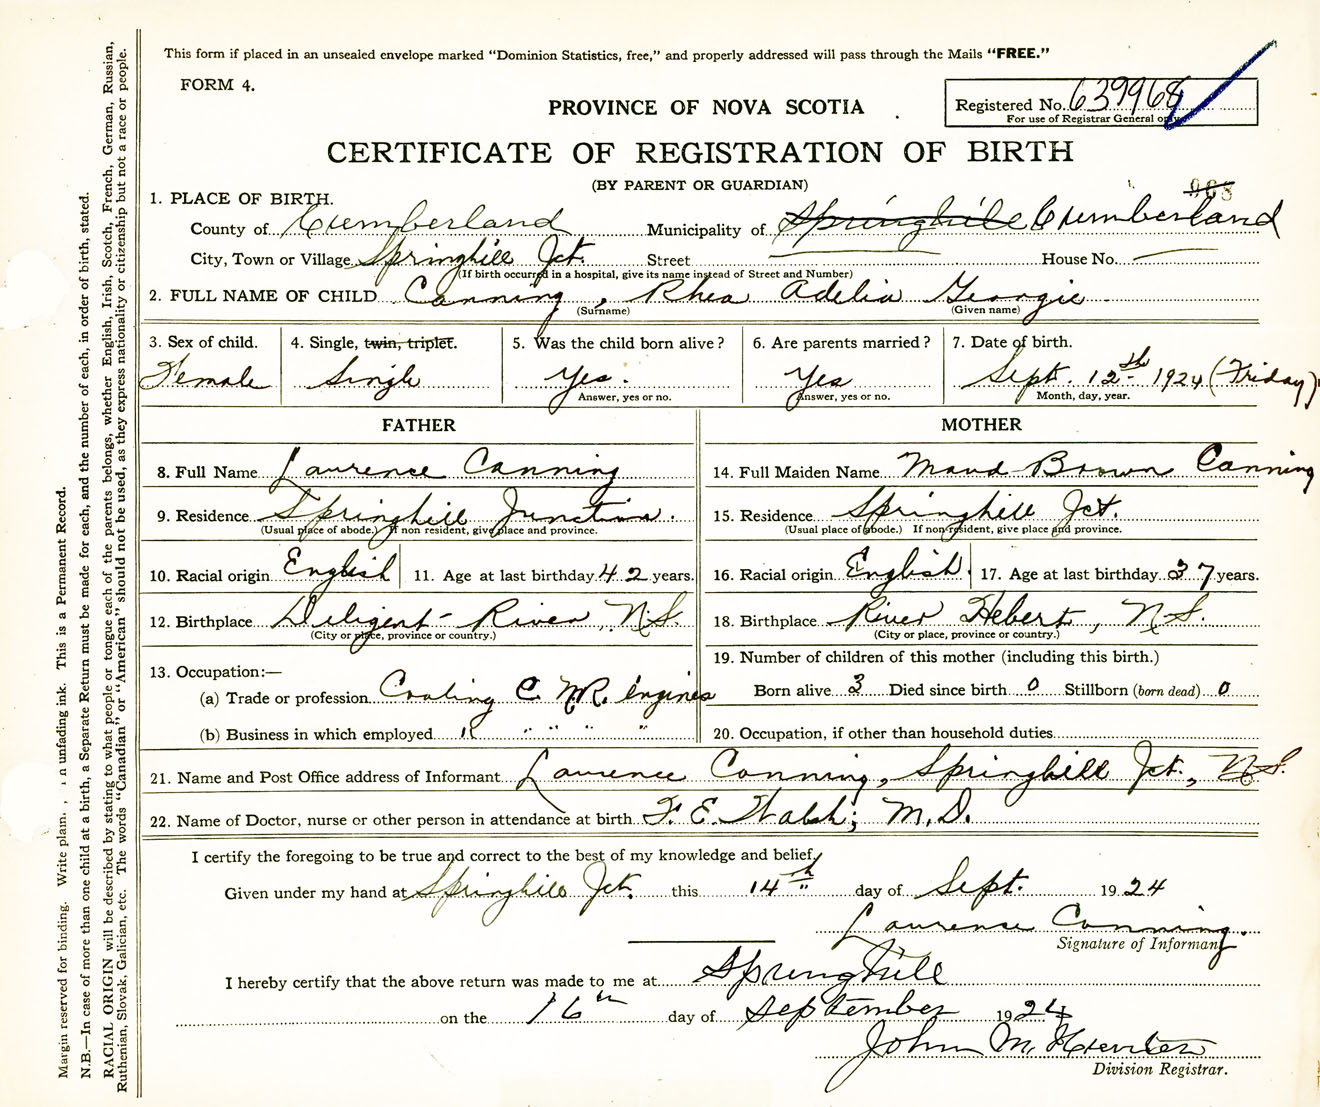 This form if placed in an unsealed envelope marked "Dominion Statistics, free," and properly addressed will pass through the Mails "FREE."
FORM 4.
Registered No. 639968
For use of Registrar General only
PROVINCE OF NOVA SCOTIA
CERTIFICATE OF REGISTRATION OF BIRTH
(BY PARENT OR GUARDIAN)
1. PLACE OF BIRTH.
County of Cumberland Municipality of Springhill Cumberland
City, Town or Village Springhill Jct. Street House No. —
(If birth occurred in a hospital, give its name instead of Street and Number)
2. FULL NAME OF CHILD Canning, Rhea Adelia Georgie
(Surname) (Given name)
3. Sex of child. 4. Single, twin, triplet. 5. Was the child born alive? 6. Are parents married? 7. Date of birth.
Female Single Yes. Yes Sept. 12th 1924 (Friday)
Answer, yes or no. Answer, yes or no. Month, day, year.
FATHER MOTHER
8. Full Name Laurence Canning 14. Full Maiden Name Maud Brown Canning
9. Residence Springhill Junction. 15. Residence Springhill Jct.
(Usual place of abode.) If non resident, give place and province. (Usual place of abode.) If non-resident, give place and province.
10. Racial origin English 11. Age at last birthday 42 years. 16. Racial origin English. 17. Age at last birthday 37 years.
12. Birthplace Diligent River, N.S. 18. Birthplace River Hebert, N.S.
(City or place, province or country.) (City or place, province or country.)
13. Occupation:— 19. Number of children of this mother (including this birth.)
(a) Trade or profession Coaling C.N.R. Engines Born alive 3 Died since birth 0 Stillborn (born dead) 0
(b) Business in which employed " " " " 20. Occupation, if other than household duties
21. Name and Post Office address of Informant Laurence Canning, Springhill Jct., N.S.
22. Name of Doctor, nurse or other person in attendance at birth F. E. Walsh; M.D.
I certify the foregoing to be true and correct to the best of my knowledge and belief,
Given under my hand at Springhill Jct. this 14th day of Sept. 1924
Laurence Canning.
Signature of Informant
I hereby certify that the above return was made to me at Springhill
on the 16th day of September 1924
John M. Hunter
Division Registrar.
Margin reserved for binding. Write plain, in unfading ink. This is a Permanent Record.
N.B.—In case of more than one child at a birth, a Separate Return must be made for each, and the number of each, in order of birth, stated.
RACIAL ORIGIN will be described by stating to what people or tongue each of the parents belongs, whether English, Irish, Scotch, French, German, Russian,
Ruthenian, Slovak, Galician, etc. The words "Canadian" or "American" should not be used, as they express nationality or citizenship but not a race or people.